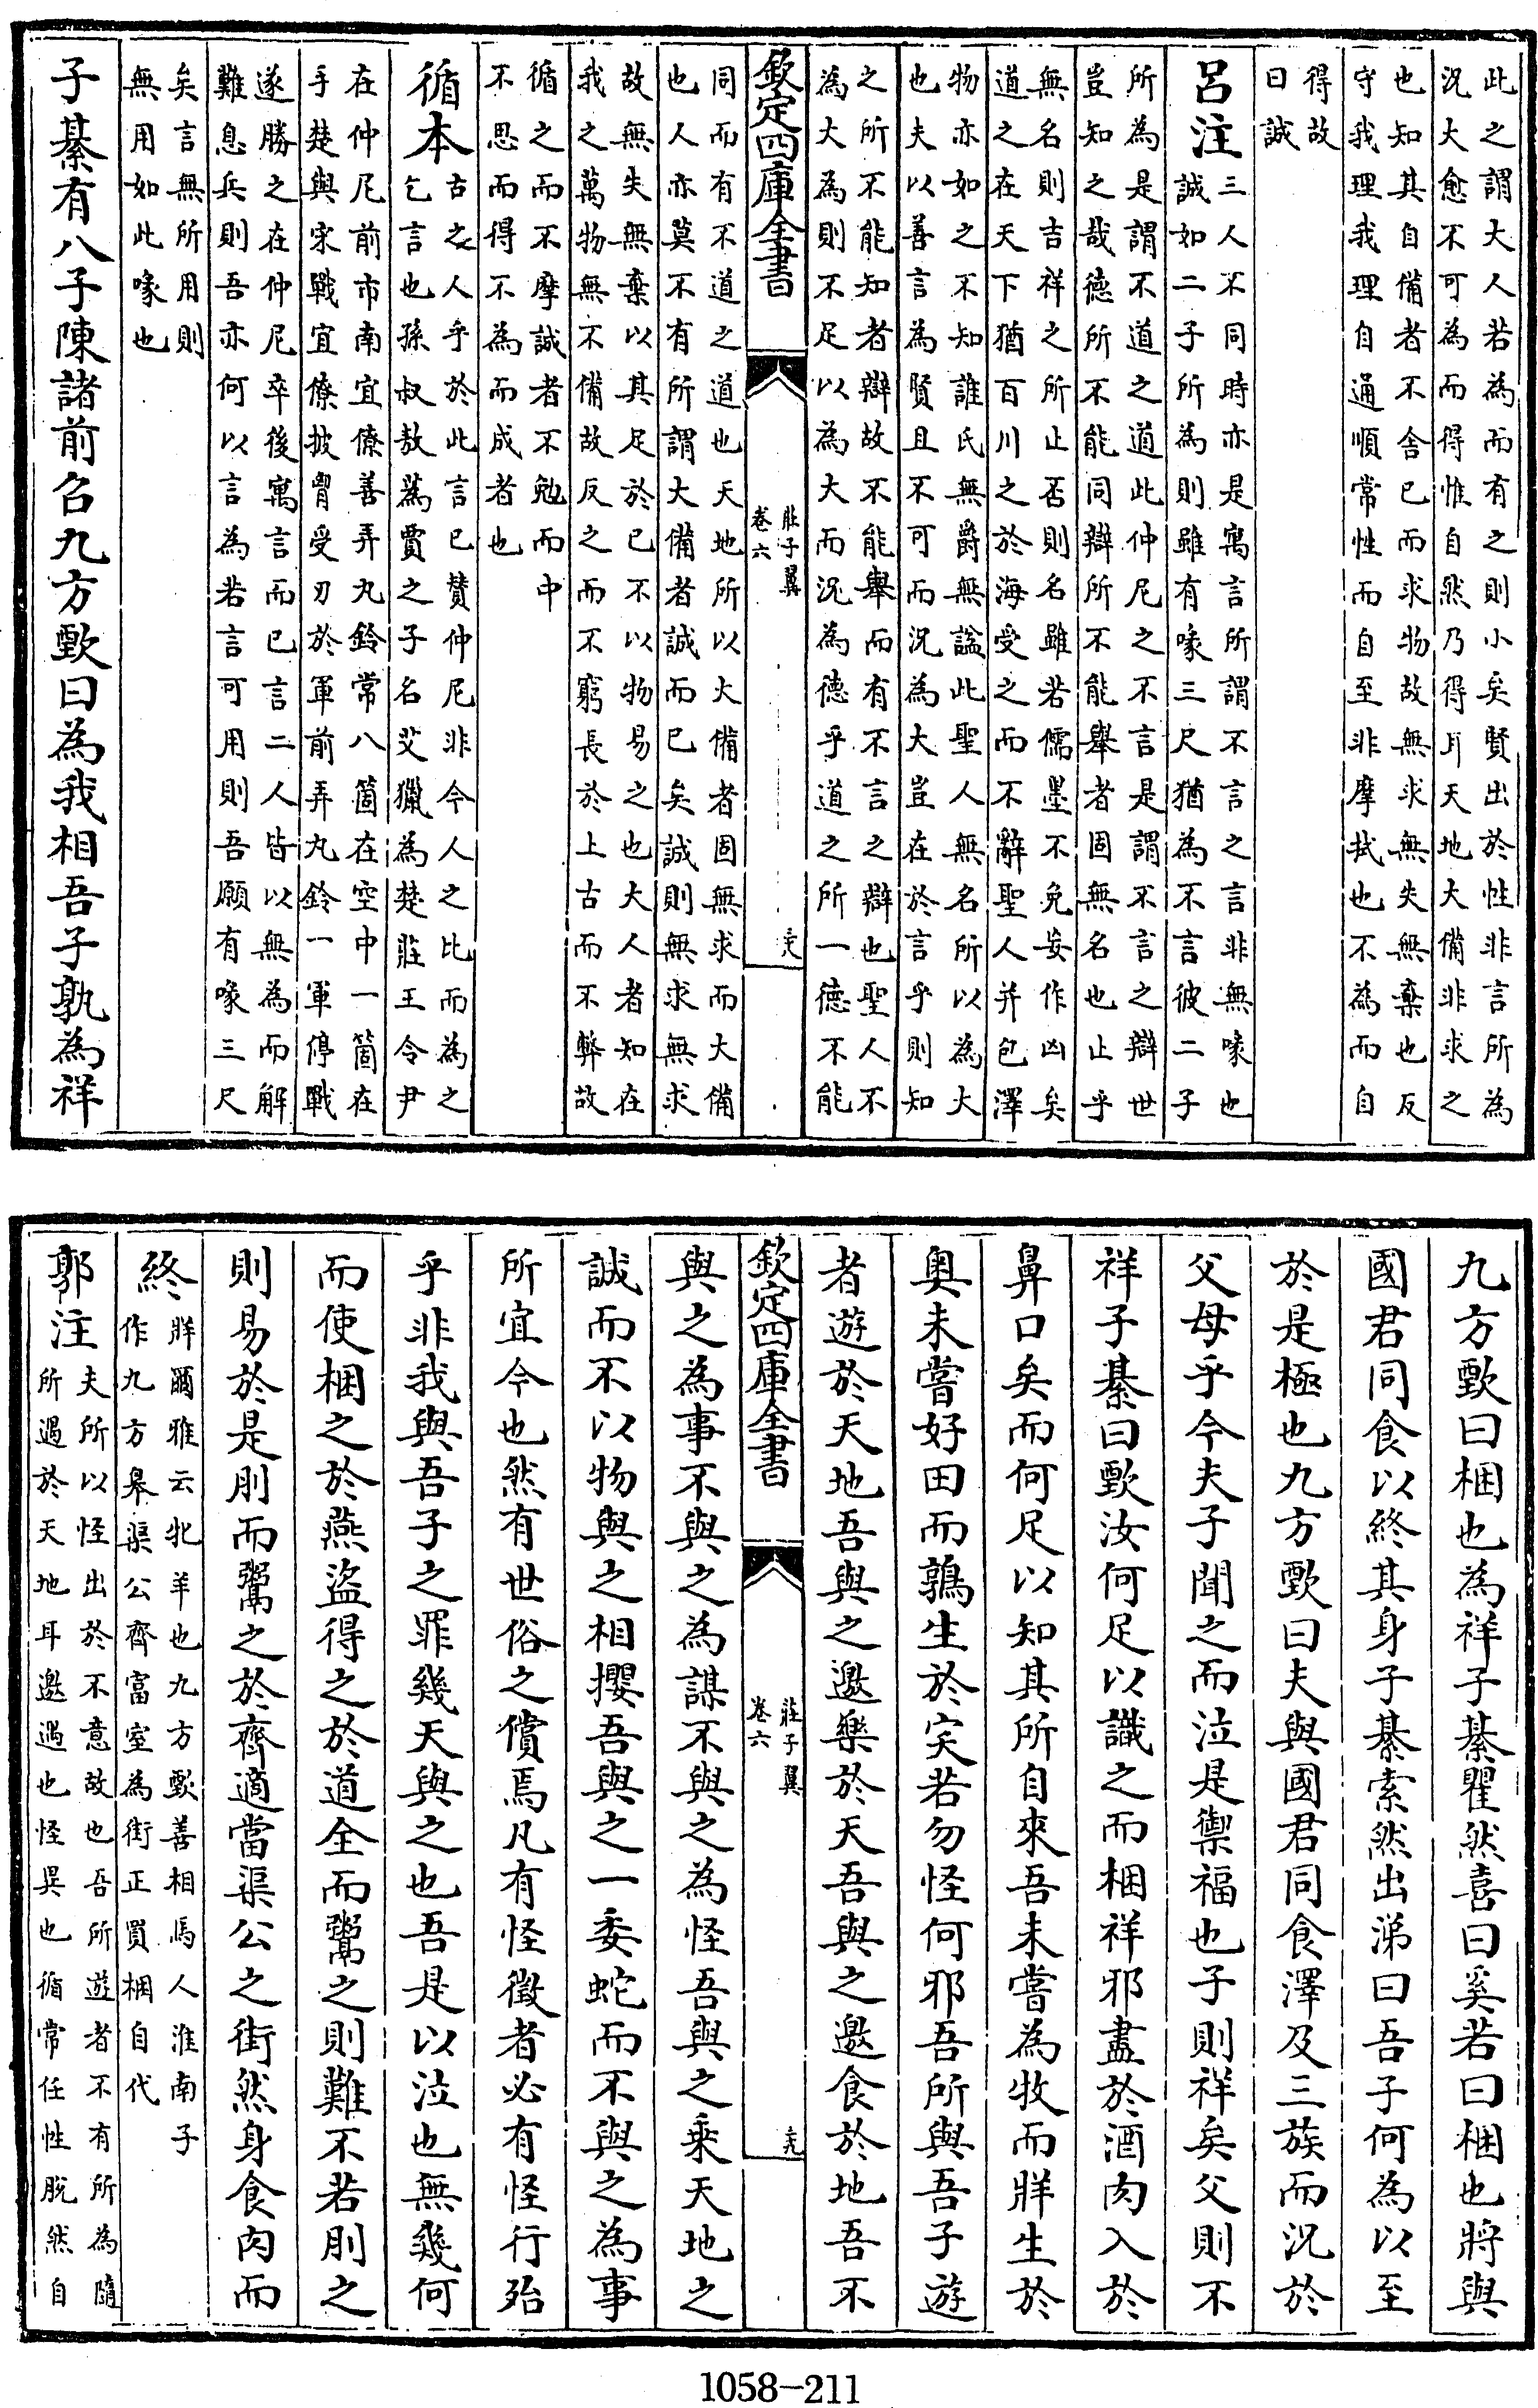 此之謂大人若為而有之則小矣賢出於性非言所為
況大愈不可為而得惟自然乃得耳天地大備非求之
也知其自備者不舍已而求物故無求無失無棄也反
守我理我理自通順常性而自至非摩拭也不為而自
得故
曰誠
呂注
三人不同時亦是寓言所謂不言之言非無喙也
誠如二子所為則雖有喙三尺猶為不言彼二子
所為是謂不道之道此仲尼之不言是謂不言之辯世
豈知之哉德所不能同辯所不能舉者固無名也止乎
無名則吉祥之所止否則名雖若儒墨不免妄作凶矣
道之在天下猶百川之於海受之而不辭聖人并包澤
物亦如之不知誰氏無爵無諡此聖人無名所以為大
也夫以善言為賢且不可而況為大豈在於言乎則知
之所不能知者辯故不能舉而有不言之辯也聖人不
為大為則不足以為大而況為德乎道之所一德不能
欽定四庫全書
莊子翼
卷六
同而有不道之道也天地所以大備者固無求而大備
也人亦莫不有所謂大備者誠而已矣誠則無求無求
故無失無棄以其足於已不以物易之也大人者知在
我之萬物無不備故反之而不窮長於上古而不弊故
循之而不摩誠者不勉而中
不思而得不為而成者也
循本
古之人乎於此言已贊仲尼非今人之比而為之
乞言也孫叔敖蒍賈之子名艾獵為楚莊王令尹
在仲尼前市南宜僚善弄丸鈴常八箇在空中一箇在
手楚與宋戰宜僚披胷受刃於軍前弄丸鈴一軍停戰
遂勝之在仲尼卒後寓言而已言二人皆以無為而解
難息兵則吾亦何以言為若言可用則吾願有喙三尺
矣言無所用則
無用如此喙也
子綦有八子陳諸前召九方歅曰為我相吾子孰為祥
九方歅曰梱也為祥子綦瞿然喜曰奚若曰梱也將與
國君同食以終其身子綦索然出涕曰吾子何為以至
於是極也九方歅曰夫與國君同食澤及三族而況於
父母乎今夫子聞之而泣是禦福也子則祥矣父則不
祥子綦曰歅汝何足以識之而梱祥邪盡於酒肉入於
鼻口矣而何足以知其所自來吾未嘗為牧而牂生於
奧未嘗好田而鶉生於宎若勿怪何邪吾所與吾子遊
者遊於天地吾與之邀樂於天吾與之邀食於地吾不
欽定四庫全書
莊子翼
卷六
與之為事不與之為謀不與之為怪吾與之乘天地之
誠而不以物與之相攖吾與之一委蛇而不與之為事
所宜今也然有世俗之償焉凡有怪徵者必有怪行殆
乎非我與吾子之罪幾天與之也吾是以泣也無幾何
而使梱之於燕盜得之於道全而鬻之則難不若刖之
則易於是刖而鬻之於齊適當渠公之街然身食肉而
終
牂爾雅云牝羊也九方歅善相馬人淮南子
作九方皋渠公齊富室為街正買梱自代
郭注
夫所以怪出於不意故也吾所遊者不有所為隨
所過於天地耳邀遇也怪異也循常任性脫然自
1058-211